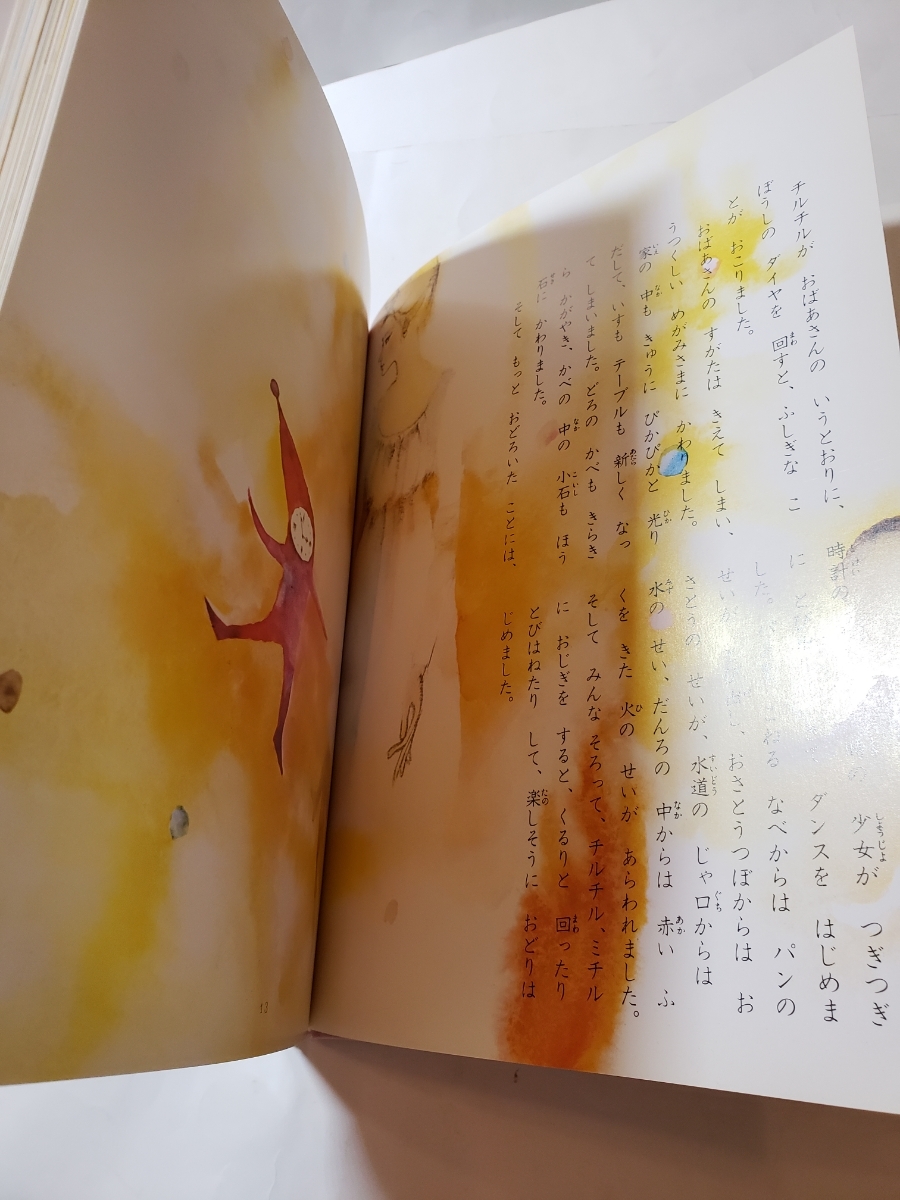 チルチルが おばあさんの いうとおりに、
ぼうしの ダイヤを 回すと、ふしぎな こ
とが おこりました。
おばあさんの すがたは きえて しまい、
うつくしい めがみさまに かわりました。
家の 中も きゅうに ぴかぴかと 光り
だして、いすも テーブルも 新しく なっ
て しまいました。どろの かべも きらき
ら かがやき、かべの 中の 小石も ほう
石に かわりました。
そして もっと おどろいた ことには、
時計の 少女が つぎつぎ
に ダンスを はじめま
した。 なべからは パンの
せいが おさとうつぼからは お
さとうの せいが、水道の じゃ口からは
水の せい、だんろの 中からは 赤い ふ
くを きた 火の せいが あらわれました。
そして みんな そろって、チルチル、ミチル
に おじぎを すると、くるりと 回ったり
とびはねたり して、楽しそうに おどりは
じめました。
13